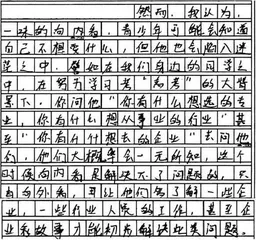 然而，我认为，
一味的向内看，青少年可能会知道
自己不想要什么，但他也会陷入迷
茫之中。譬如在我们身边的同学之
中，在努力学习考“高考”的大背
景下，你问他“你有什么想选的专
业，你有什么想从事业的行业”甚
至“你有什么什想去的企业”去问他
们，他们大概率会一无所知，这个
时候向内看是解决不了问题的，只
有向外看，且让他们多了解一些企
业，一些行业人员的工作，甚至企
业和故事才能初步解决此类问题。